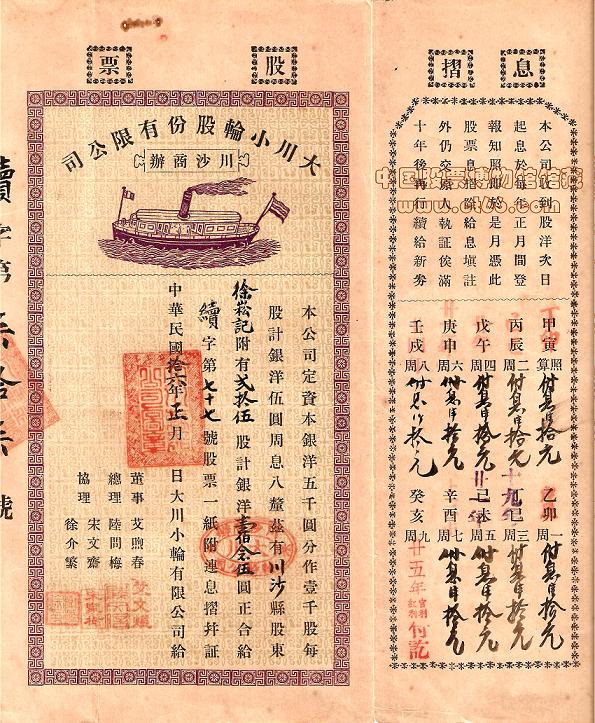 息摺
本公司收到股洋次日
起息於每年正月間登
報知照卽於是月憑此
股票息摺除給息塡註
外仍交原人執証俟滿
十年後再行續給新劵
中国股票博物馆馆藏
甲寅照算付息洋拾元
乙卯一周付息洋拾元
丙辰二周付息洋拾元
丁巳三周付息洋拾元
戊午四周付息洋拾元
己未五周付息洋拾元
庚申六周付息洋拾元
辛酉七周付息洋拾元
壬戌八周付息洋拾元
癸亥九周
廿五年官利紅利付訖
股票
大川小輪股份有限公司
川沙商辦
本公司定資本銀洋五千圓分作壹千股每
股計銀洋伍圓周息八釐茲有川沙縣股東
徐崧記附有弍拾伍股計銀洋壹佰念伍圓正合給
續字第七十七號股票一紙附連息摺幷証
中華民國拾六年正月 日大川小輪有限公司給
董事 艾煦春
總理 陸問梅
協理 宋文齋
徐介繁